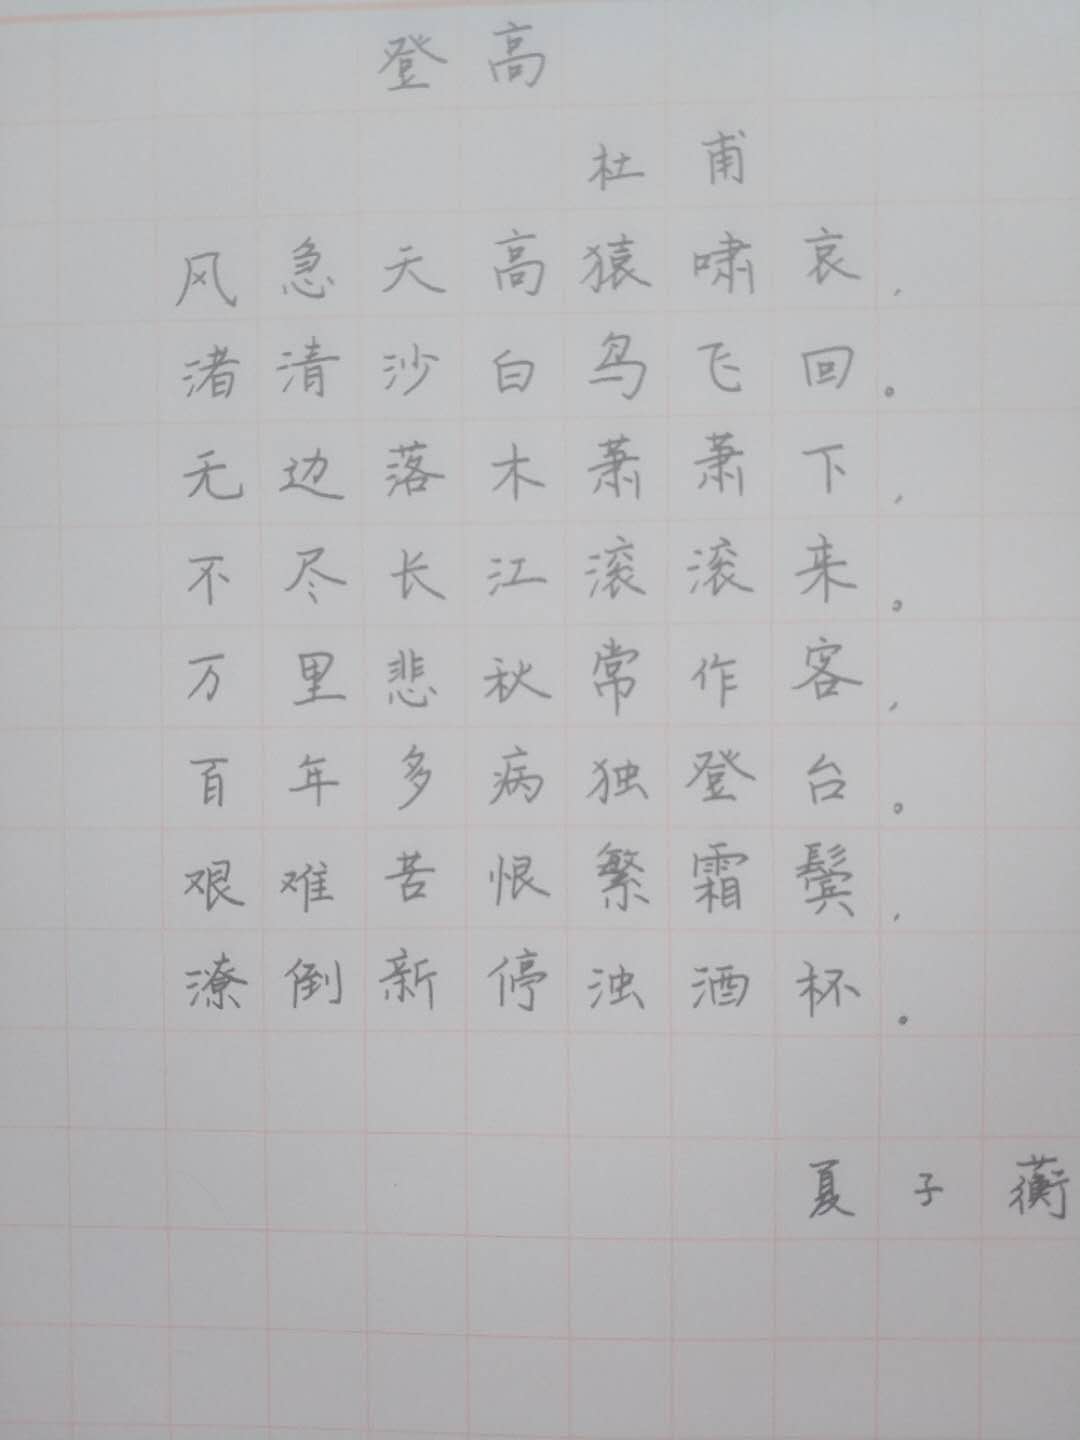 登高
杜甫
风急天高猿啸哀,
渚清沙白鸟飞回。
无边落木萧萧下,
不尽长江滚滚来。
万里悲秋常作客,
百年多病独登台。
艰难苦恨繁霜鬓,
潦倒新停浊酒杯。
夏子蘅